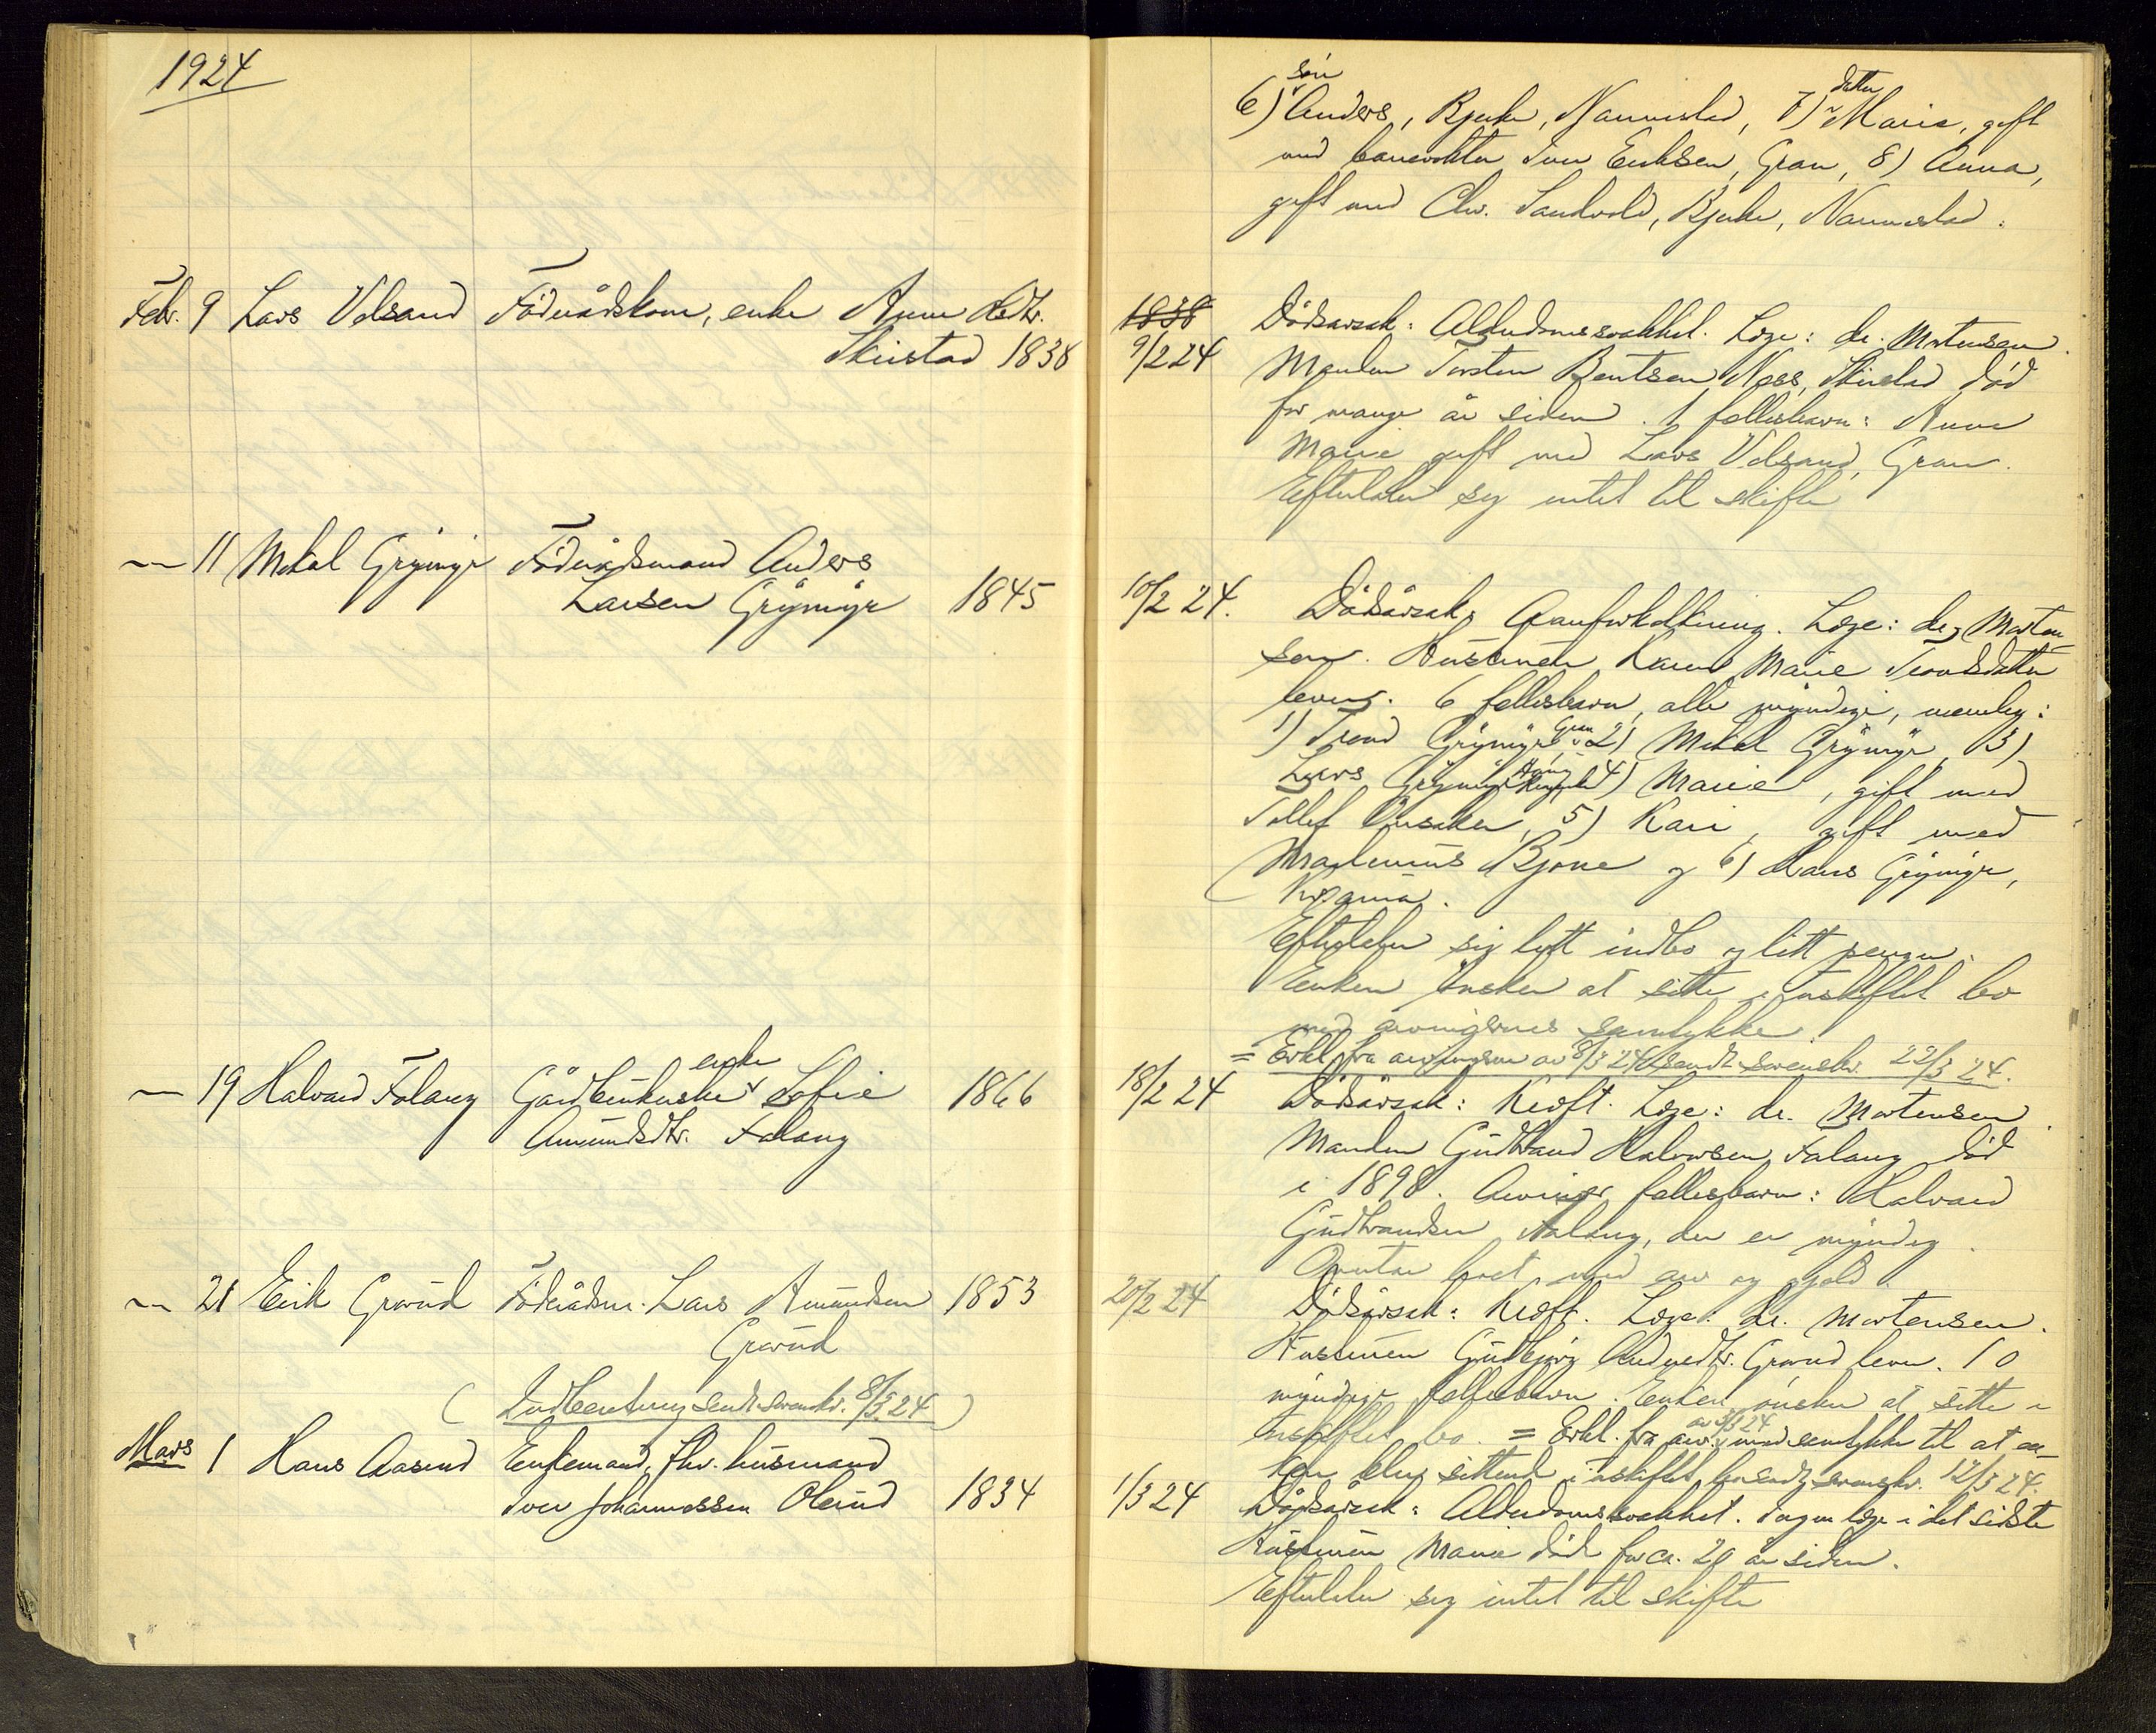 1924
Febr. 9 Lars Velsand Föderådskone, enke Anne
Skiristad 1838
— 11 Mikal Grymyr Föderådsmand Anders
Larsen Grymyr 1845
— 19 Halvard Falang Gårdbrukerske enke Sofie 1866
Amundsdtr. Falang
— 21 Erik Gravud Föderådsm. Lars Amundsen 1853
Gravud
( Indberetning sendt sorenskr. 8/3 24 )
Mars 1 Hans Aasrud Enkemand, fhv. husmand
Iver Johannessen Olerud 1834
søn datter
6) Anders, Bjerke, Nannestad, 7) Marie, gift
med banevokter Iver Eriksen, Gran, 8) Anna,
gift med Chr. Sandvold, Bjerke, Nannestad.
1838 Dödsårsak: Alderdomssvakhet. Læge: dr. Mortensen.
9/2 24 Manden Torsten Bentsen Næss, Skirstad död
for mange år siden. 1 fellesbarn: Anne
Marie gift med Lars Velsand, Gran.
Efterlater sig intet til skifte
10/2 24. Dödsårsak: Aareforkalkning. Læge: dr. Morten-
sen. Hustruen Karen Marie Trondsdatter
lever. 6 fellesbarn, alle myndige, nemlig:
1) Trond Grymyr Gran 2) Mikal Grymyr, 3)
Lars Grymyr 4) Marie, gift med
Tollef 5) Kari, gift med
Martinius Bjone og 6) Hans Grymyr,
Kr.ania.
Efterlater sig lytt indbo og litt penger.
Enken ønsker at sitte i uskiftet bo
med arvingernes samtykke.
= Erkl. fra arvingerne av 8/3 24 sendt sorenskr. 22/3 24.
18/2 24 Dödsårsak: Kreft. Læge: dr. Mortensen.
Manden Gudbrand Halvorsen Falang död
i 1898. Arvinger fellesbarn: Halvard
Gudbrandsen Falang, der er myndig.
Overtar boet med arv og gjeld.
20/2 24 Dödsårsak: Kreft. Læge: dr. Mortensen.
Hustruen Gudbjörg Gravud lever. 10
myndige fellesbarn. Enken ønsker at sitte i
uskiftet bo. = Erkl. fra arv. av 3/3 24 med samtykke til at en-
ken blir sittende i uskiftet bo sendt sorenskr. 12/3 24.
1/3 24 Dödsårsak: Alderdomssvakhet. Ingen læge i det sidste
Hustruen Marie död for ca. 20 år siden.
Efterlater sig intet til skifte